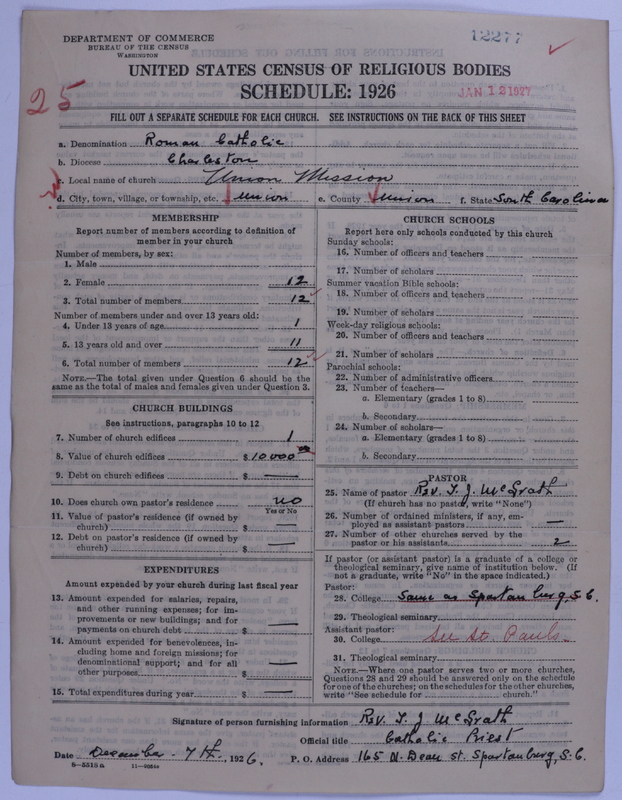 DEPARTMENT OF COMMERCE
BUREAU OF THE CENSUS
WASHINGTON
12277
UNITED STATES CENSUS OF RELIGIOUS BODIES
SCHEDULE: 1926
JAN 13 1927
25
FILL OUT A SEPARATE SCHEDULE FOR EACH CHURCH. SEE INSTRUCTIONS ON THE BACK OF THIS SHEET
a. Denomination Roman Catholic
b. Diocese Charleston
c. Local name of church Union Mission
d. City, town, village, or township, etc. Union e. County Union f. State South Carolina
MEMBERSHIP
Report number of members according to definition of member in your church
Number of members, by sex:
1. Male
2. Female 12
3. Total number of members 12
Number of members under and over 13 years old:
4. Under 13 years of age 1
5. 13 years old and over 11
6. Total number of members 12
NOTE.—The total given under Question 6 should be the same as the total of males and females given under Question 3.
CHURCH BUILDINGS
See instructions, paragraphs 10 to 12
7. Number of church edifices 1
8. Value of church edifices $ 10 000 00
9. Debt on church edifices $ —
10. Does church own pastor's residence no
Yes or No
11. Value of pastor's residence (if owned by church) $ —
12. Debt on pastor's residence (if owned by church) $ —
EXPENDITURES
Amount expended by your church during last fiscal year
13. Amount expended for salaries, repairs, and other running expenses; for improvements or new buildings; and for payments on church debt $ —
14. Amount expended for benevolences, including home and foreign missions; for denominational support; and for all other purposes $ —
15. Total expenditures during year $ —
CHURCH SCHOOLS
Report here only schools conducted by this church
Sunday schools:
16. Number of officers and teachers
17. Number of scholars
Summer vacation Bible schools:
18. Number of officers and teachers
19. Number of scholars
Week-day religious schools:
20. Number of officers and teachers
21. Number of scholars
Parochial schools:
22. Number of administrative officers
23. Number of teachers—
a. Elementary (grades 1 to 8)
b. Secondary
24. Number of scholars—
a. Elementary (grades 1 to 8)
b. Secondary
PASTOR
25. Name of pastor Rev. T. J. McGrath
(If church has no pastor, write "None")
26. Number of ordained ministers, if any, employed as assistant pastors —
27. Number of other churches served by the pastor or his assistants 2
If pastor (or assistant pastor) is a graduate of a college or theological seminary, give name of institution below. (If not a graduate, write "No" in the space indicated.)
Pastor:
28. College Same as Spartanburg, S.C.
29. Theological seminary
Assistant pastor:
30. College See St. Pauls
31. Theological seminary
NOTE.—Where one pastor serves two or more churches, Questions 28 and 29 should be answered only on the schedule for one of the churches; on the schedules for the other churches, write "See schedule for church."
Signature of person furnishing information Rev. T. J. McGrath
Official title Catholic Priest
Date December 7th, 1926. P. O. Address 165 N. Dean st. Spartanburg, S.C.
8—5518a 11—9054a